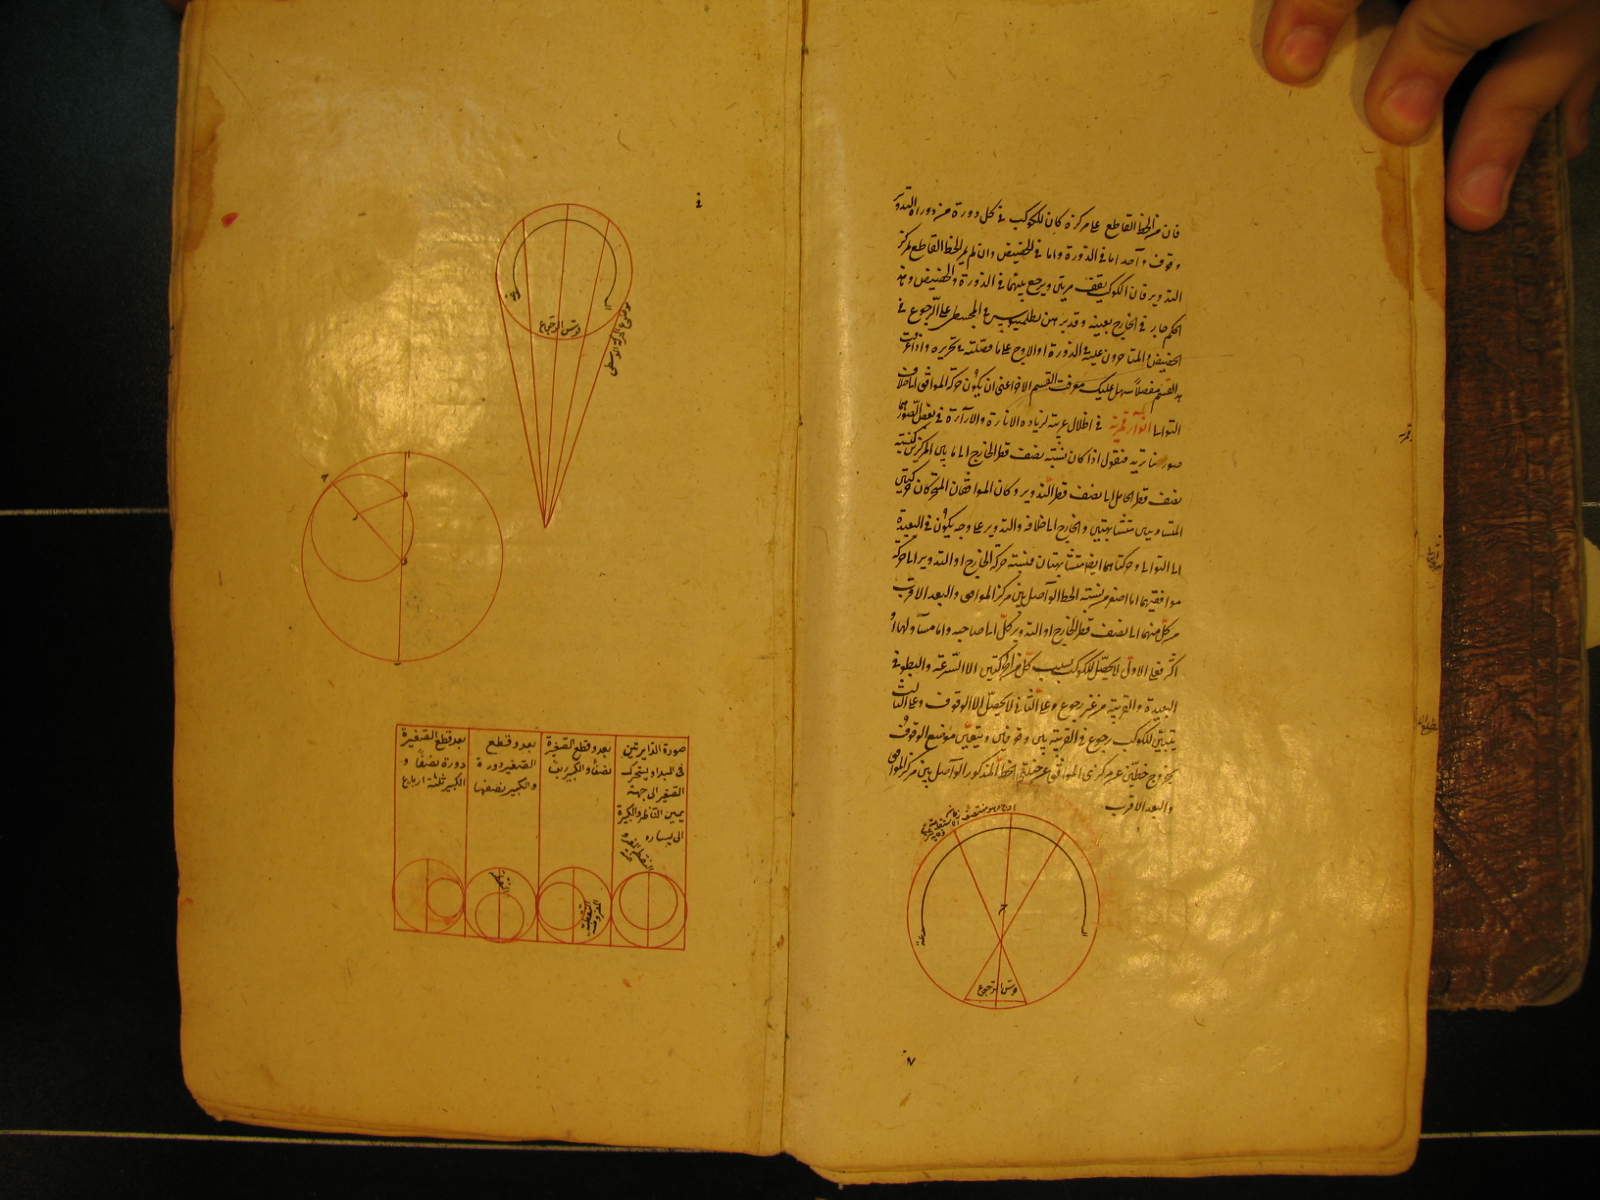 فان مر الخط القاطع على مركزه كان للكوكب في كل دورة من دورات التدوير
وقوف واحد اما في الذروة واما في الحضيض وان لم يمر الخط القاطع بمركز
التدوير فان الكوكب يقف مرتين ويرجع بينهما في الذروة والحضيض وهذ
الحكم جار في الخارج بعينه وقد برهن بطلميوس في المجسطي على الرجوع في
الحضيض والمتاخرون عليه في الذروة او الاوج على ما فصلته في تحريره واذا
هذا القسم مفصلا سهل عليك معرفة القسم الاخر اعني ان يكون حركة الموافق الى خلاف
التوالي انوار قمرية في اظلال عرشية لزيادة الانارة والاراءة في بعض الصور
فنقول اذا كان نسبة نصف قطر الخارج الى ما بين المركزين كنسبة
نصف قطر الحامل الى نصف قطر التدوير وكان الموافقان المتحركان حركتين
المتساويين متشابهتين والخارج الى خلافه والتدوير على وجه يكون في البعيدة
الى التوالي وحركتاهما ايضا متشابهتان فنسبة حركة الخارج او التدوير الى حركة
موافقيهما اما اصغر من نسبة الخط الواصل بين مركز الموافق والبعد الاقرب
من كل منهما الى نصف قطر الخارج او التدوير كل الى صاحبه واما مساو لها او
اكثر فعلى الاول لا يحصل للكوكب بسبب كل من الحركتين الا السرعة والبطؤ في
البعيدة والقريبة من غير رجوع وعلى الثاني لا يحصل الا الوقوف وعلى الثالث
للكوكب رجوع في القريبة بين وقوفين ويتعين موضع الوقوف
بخروج خطين عن مركزي الموافق عن جنبتي الخط المذكور الواصل بين مركز الموافق
والبعد الاقرب
قوس الرجوع
في
قوس الرجوع
صورة الدايرتين
في المبدا ويتحرك
الصغير الى جهة
يمين الناظر والكبيرة
الى يساره
بعد وقطع الصغيرة
نصفا والكبير
بعد وقطع
الصغير دورة
والكبير نصفها
بعد قطع الصغيرة
دورة نصفا و
الكبير ثلثة ارباع
النقطة
المفروضة